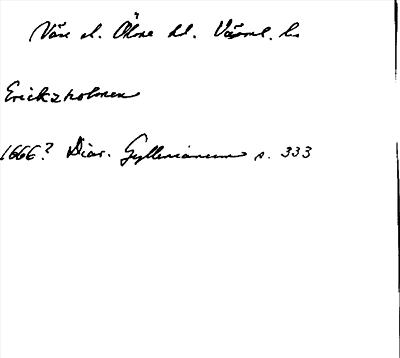 Väse el. Ölme hd. Värml. l.
Erickzholmen
1666? Diar. Gyllenianum s. 333